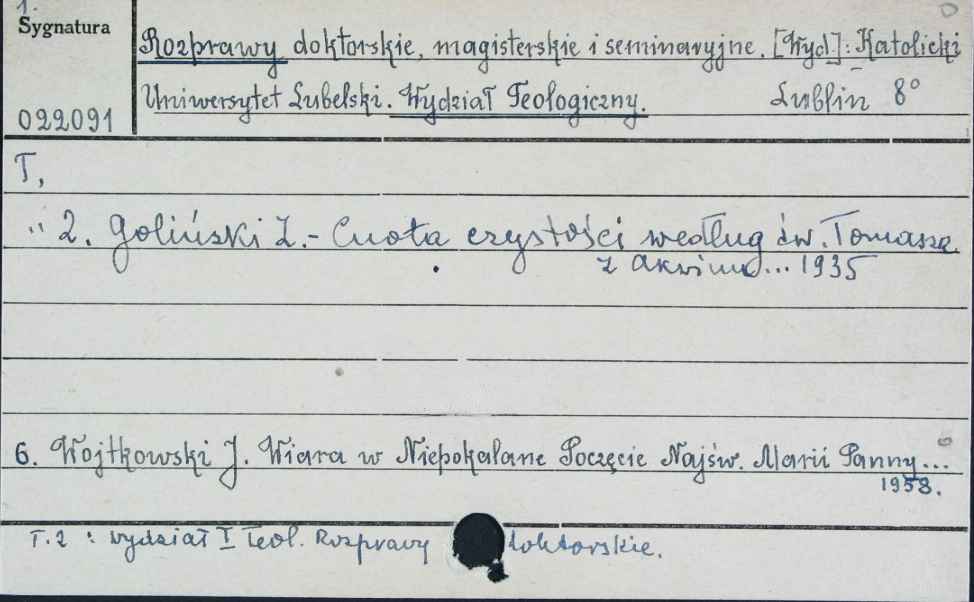 1.
Sygnatura
Rozprawy doktorskie, magisterskie i seminaryjne. [Wyd.]: Katolicki
Uniwersytet Lubelski. Wydział Teologiczny. Lublin 8°
022091
T,
" 2. Goliński Z. - Cnota czystości według św. Tomasza
z Akwinu... 1935
6. Wojtkowski J. Wiara w Niepokalane Poczęcie Najśw. Marii Panny...
1958.
T.2 : Wydział I Teol. Rozprawy doktorskie.